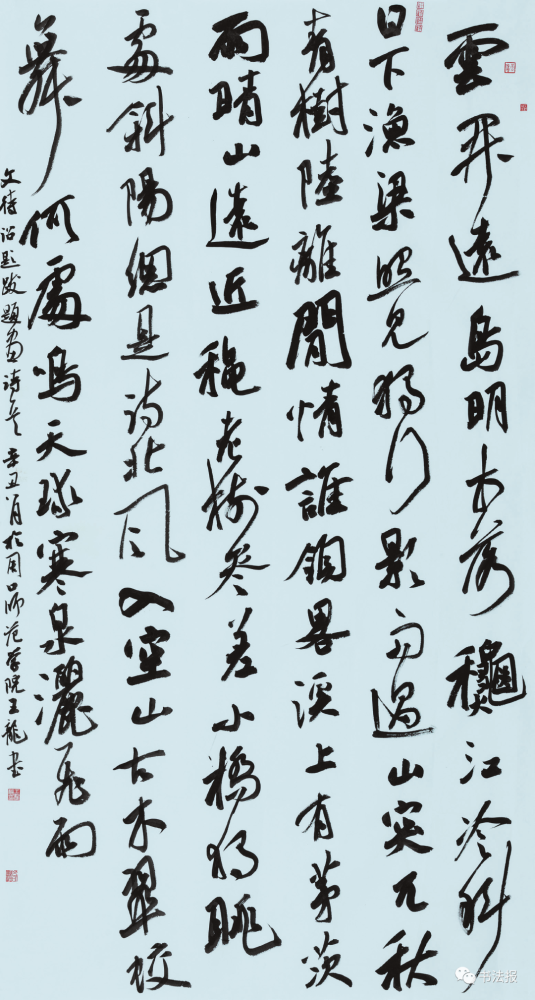 雲開遠島明木落龝江冷斜
日下漁梁照見獨行影雨過山突兀秋
青樹陸離閒情誰領畧溪上有茅茨
雨晴山遠近穐老樹參差小橋獨眺
處斜陽總是詩北風入空山古木翠蛟
舞何處鳴天球寒泉灑飛雨
文待詔題跋題画詩 辛丑 月於周口師范学院王龍書
书法报